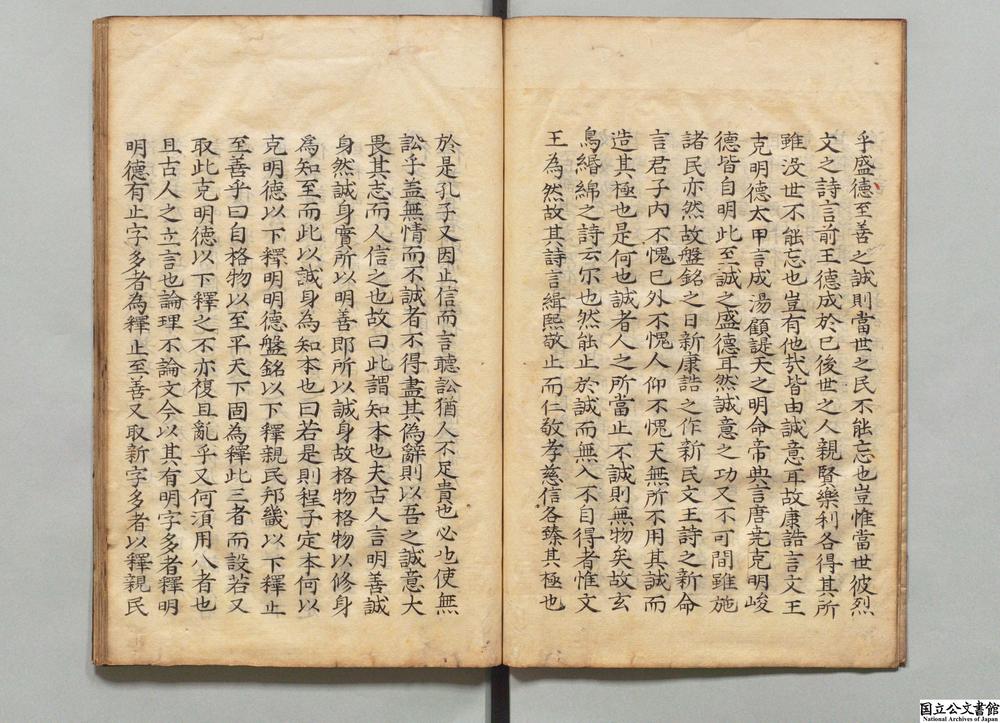 乎盛德至善之誠則當世之民不能忘也豈惟當世彼烈
文之詩言前王德成於已後世之人親賢樂利各得其所
雖沒世不能忘也豈有他哉皆由誠意耳故康誥言文王
克明德太甲言成湯顧諟天之明命帝典言唐堯克明峻
德皆自明此至誠之盛德耳然誠意之功又不可間雖施
諸民亦然故盤銘之日新康誥之作新民文王詩之新命
言君子內不愧已外不愧人仰不愧天無所不用其誠而
造其極也是何也誠者人之所當止不誠則無物矣故玄
鳥緡綿之詩云尓也然能止於誠而無入不自得者惟文
王為然故其詩言緝熙敬止而仁敬孝慈信各臻其極也
於是孔子又因止信而言聽訟猶人不足貴也必也使無
訟乎盖無情而不誠者不得盡其偽辭則以吾之誠意大
畏其志而人信之也故曰此謂知本也夫古人言明善誠
身然誠身實所以明善即所以誠身故格物格物以修身
為知至而此以誠身為知本也曰若是則程子定本何以
克明德以下釋明明德盤銘以下釋親民邦畿以下釋止
至善乎曰自格物以至平天下固為釋此三者而設若又
取此克明德以下釋之不亦復且亂乎又何須用八者也
且古人之立言也論理不論文今以其有明字多者釋明
明德有止字多者為釋止至善又取新字多者以釋親民
国立公文書館
National Archives of Japan